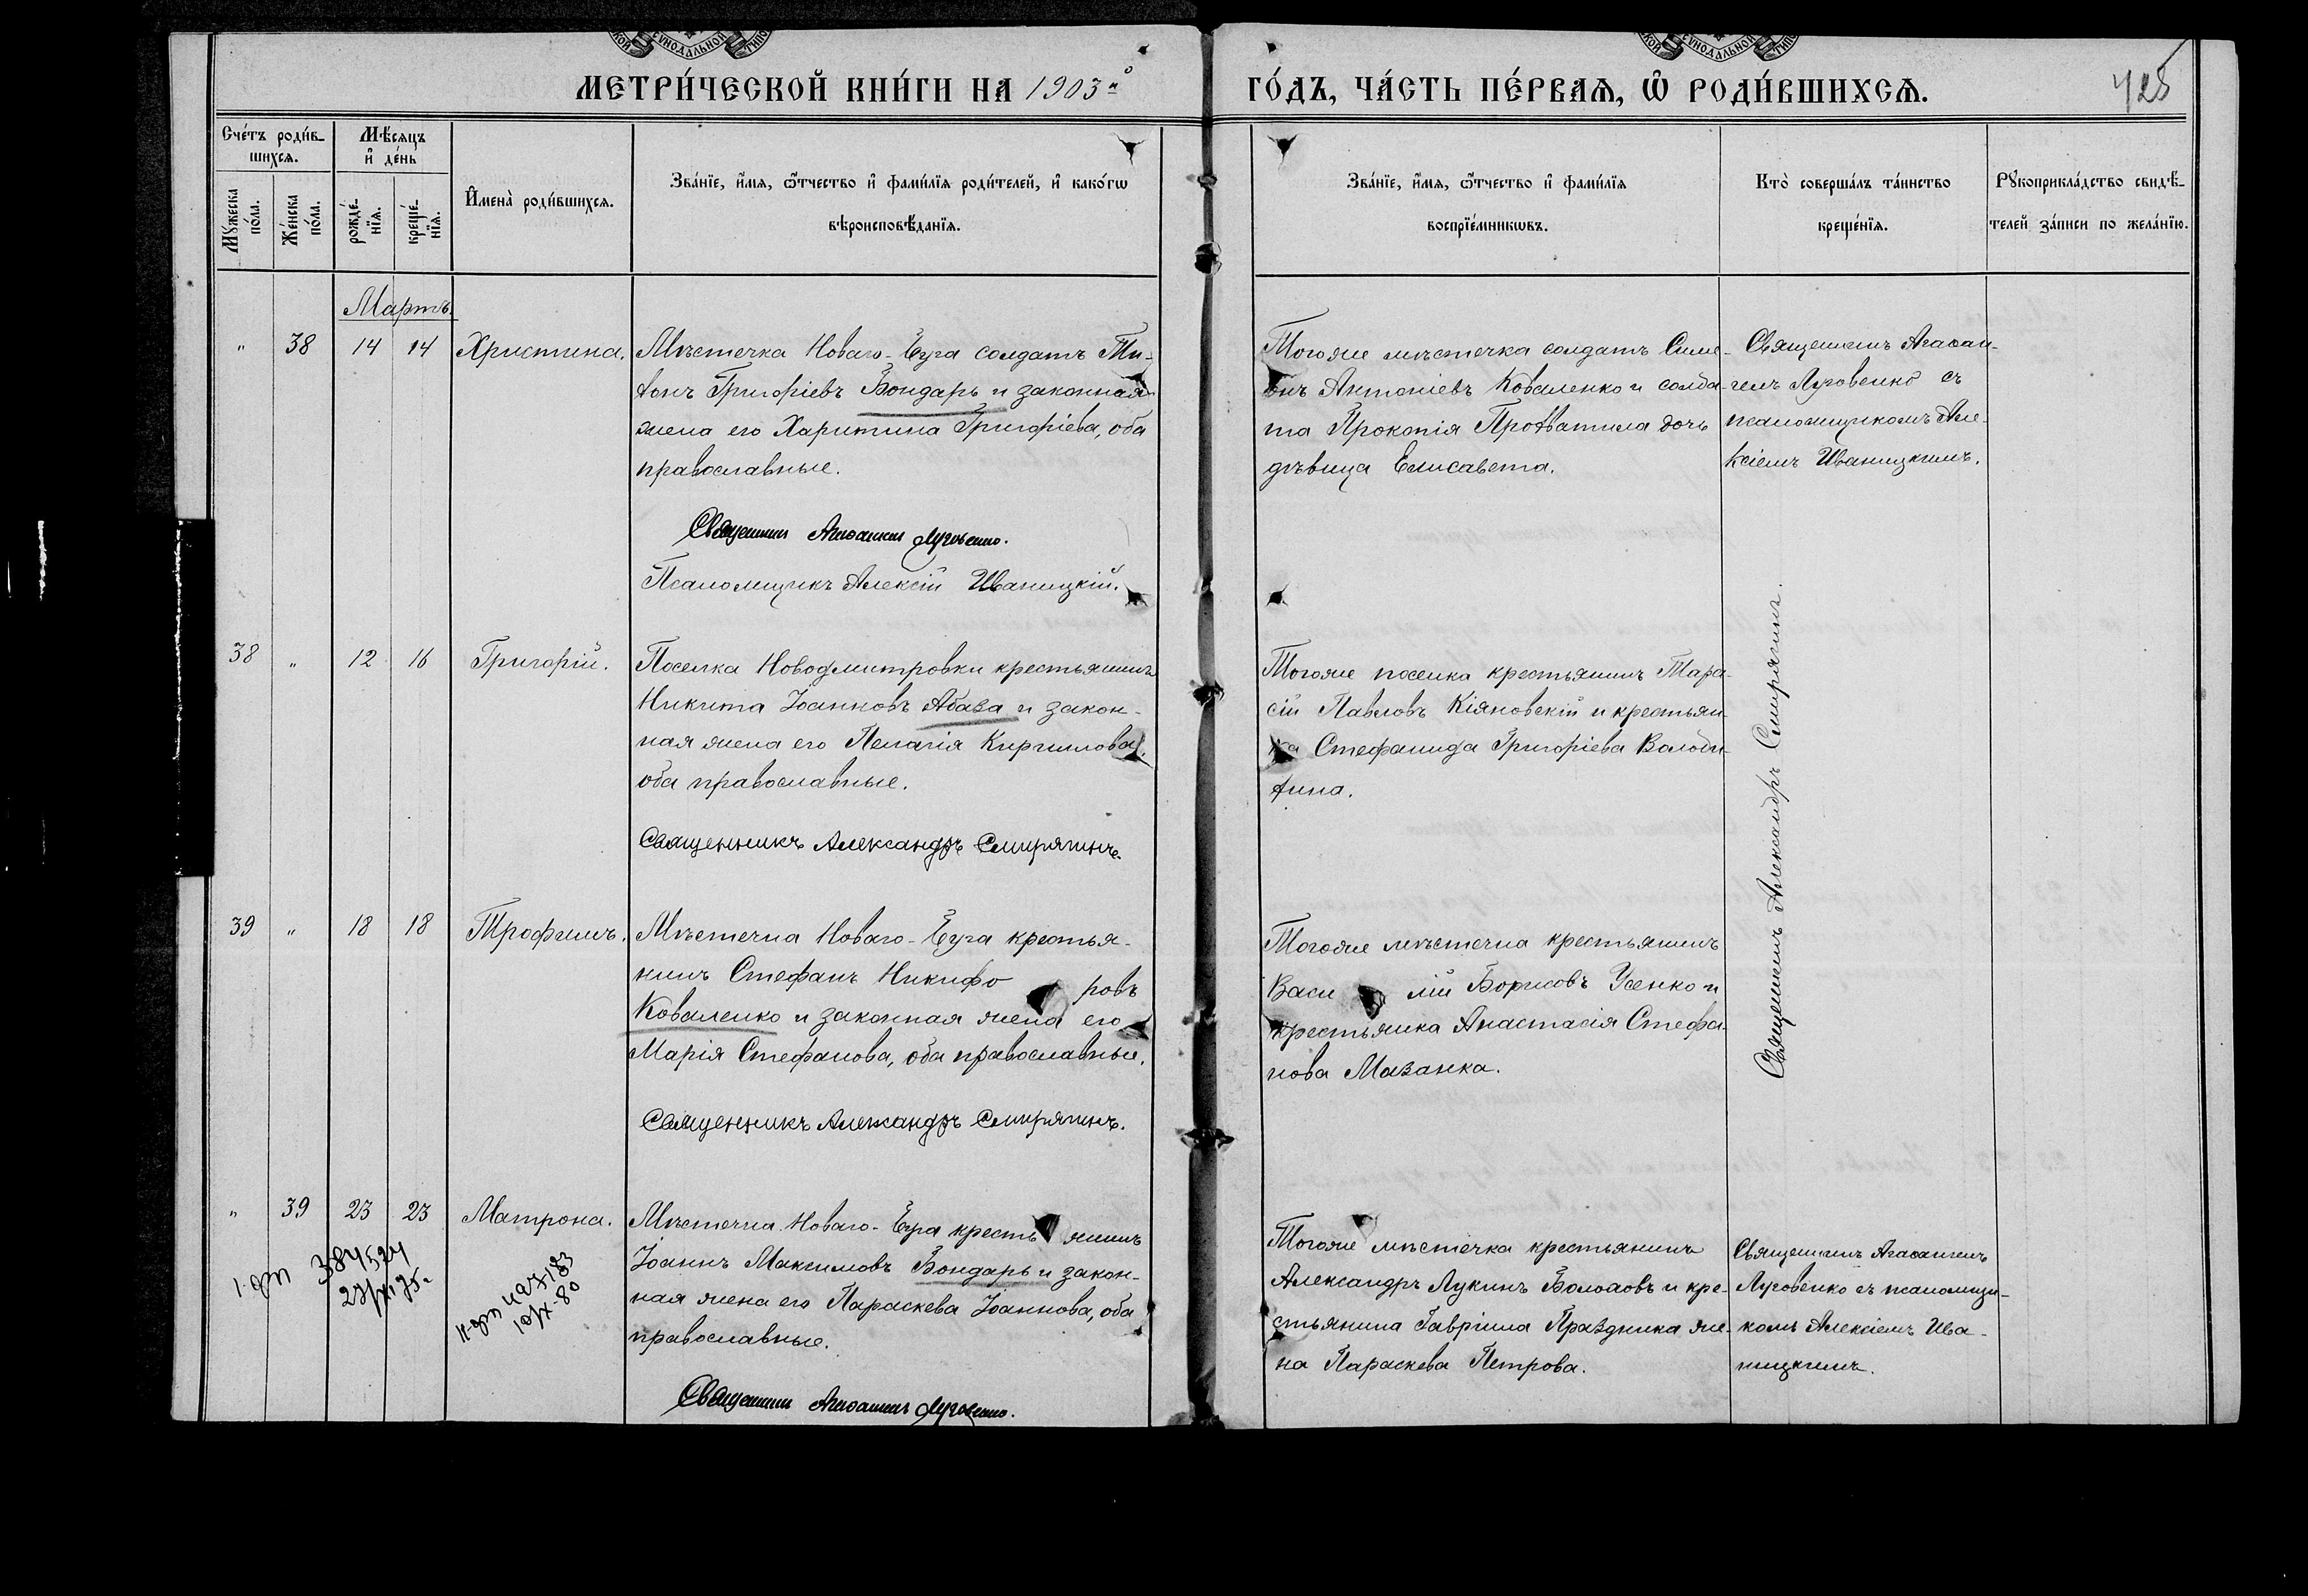 МЕТРИ́ЧЕСКОЙ КНИ́ГИ НА 1903й
ГО́ДЪ, ЧА́СТЬ ПЕ́РВАЯ, Ѡ РОДИ́ВШИХСЯ.
428
Сче́тъ роди́в-
шихся.
Мѣ́сяцъ
и҆ де́нь
Мꙋ́жеска
по́ла.
Же́нска
по́ла.
рожде́-
нїя.
креще́-
нїя.
И҆мена̀ роди́вшихся.
Зва́нїе, и҆́мя, ѻ҆́тчество и҆ фами́лїя роди́телей, и҆ како́гѡ
вѣроисповѣ́данїя.
Зва́нїе, и҆́мя, ѻ҆́тчество и҆ фами́лїя
воспрїе́мникѡвъ.
Кто̀ соверша́лъ та́инство
креще́нїя.
Рꙋкоприкла́дство свидѣ́-
телей за́писи по жела́нїю.
Мартъ.
" 38 14 14 Христина.
Мѣстечка Новаго-Буга солдатъ Ти-
ѳонъ Григоріевъ Бондарь и законная
жена его Харитина Григоріева, оба
православные.
Священникъ Агаѳангелъ Луговенко.
Псаломщикъ Алексій Иваницкій.
Тогоже мѣстечка солдатъ Симе-
онъ Антоніевъ Коваленко и солда-
та Прокопія Протватила дочь
дѣвица Елисавета.
Священникъ Агаѳан-
гелъ Луговенко съ
псаломщикомъ Але-
ксіемъ Иваницкимъ.
38 " 12 16 Григорій.
Поселка Новодмитровки крестьянинъ
Никита Іоанновъ Абаза и закон-
ная жена его Пелагія Кириллова,
оба православные.
Священникъ Александръ Смирягинъ.
Тогоже поселка крестьянинъ Тара-
сій Павловъ Кіяновскій и крестьян-
ка Стефанида Григоріева
Священникъ Александръ Смирягинъ.
39 " 18 18 Трофимъ.
Мѣстечка Новаго-Буга крестья-
нинъ Стефанъ Никифо ровъ
Коваленко и законная жена его
Марія Стефанова, оба православные.
Священникъ Александръ Смирягинъ.
Тогоже мѣстечка крестьянинъ
Васи лій Борисовъ Усенко и
крестьянка Анастасія Стефа-
нова Мазанка.
" 39 23 23 Матрона.
Мѣстечка Новаго-Буга кресть янинъ
Іоаннъ Максимовъ Бондарь и закон-
ная жена его Параскева Іоаннова, оба
православные.
Священникъ Агаѳангелъ Луговенко.
Тогоже мѣстечка крестьянинъ
Александръ Лукинъ и кре-
стьянина Гавріила Праздника же-
на Параскева Петрова.
Священникъ Агаѳангелъ
Луговенко съ псаломщи-
комъ Алексіемъ Ива-
ницкимъ.